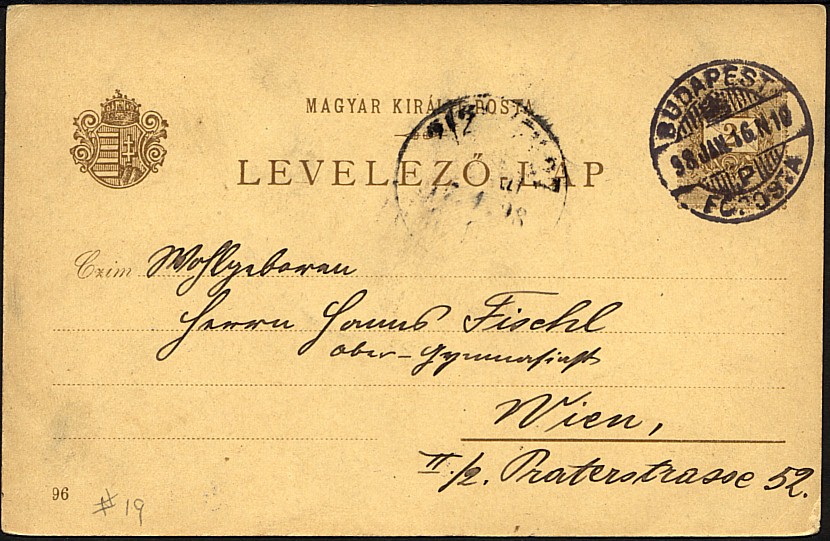 MAGYAR KIRÁLYI POSTA
LEVELEZŐ LAP
BUDAPEST
98 JAN. 16. N 10
P
FŐPOSTA
2/2
98
Czim Wohlgeboren
Herrn Hanns Fischl
Ober-Gymnasiast
Wien,
II./2. Praterstrasse 52.
96
#19